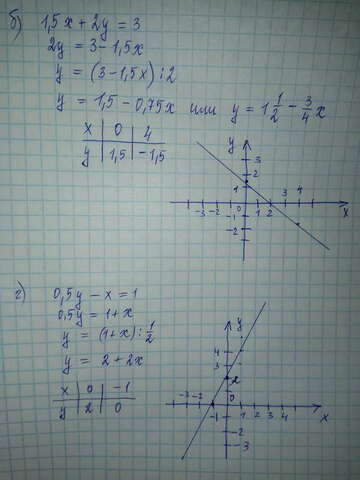 б) 1,5x + 2y = 3
2y = 3 - 1,5x
y = (3 - 1,5x) : 2
y = 1,5 - 0,75x или y = 1 1/2 - 3/4 x
x | 0 | 4
y | 1,5 | -1,5
y
3
2
1
-3 -2 -1 0 1 2 3 4
x
-1
-2
г) 0,5y - x = 1
0,5y = 1 + x
y = (1 + x) : 1/2
y = 2 + 2x
x | 0 | -1
y | 2 | 0
y
4
3
2
-3 -2 -1 0 1 2 3 4
x
-2
-3